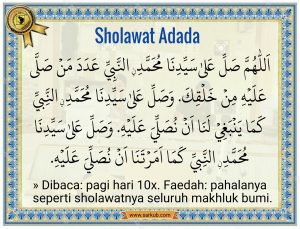 Sholawat Adada
اَللّٰهُمَّ صَلِّ عَلٰى سَيِّدِنَا مُحَمَّدٍ ࣙالنَّبِيِّ عَدَدَ مَنْ صَلَّى
عَلَيْهِ مِنْ خَلْقِكَ. وَصَلِّ عَلٰى سَيِّدِنَا مُحَمَّدٍ ࣙالنَّبِيِّ
كَمَا يَنْبَغِيْ لَنَا اَنْ نُصَلِّيَ عَلَيْهِ. وَصَلِّ عَلٰى سَيِّدِنَا
مُحَمَّدٍ ࣙالنَّبِيِّ كَمَا اَمَرْتَنَا اَنْ نُصَلِّيَ عَلَيْهِ.
» Dibaca: pagi hari 10x. Faedah: pahalanya
seperti sholawatnya seluruh makhluk bumi.
www.sarkub.com